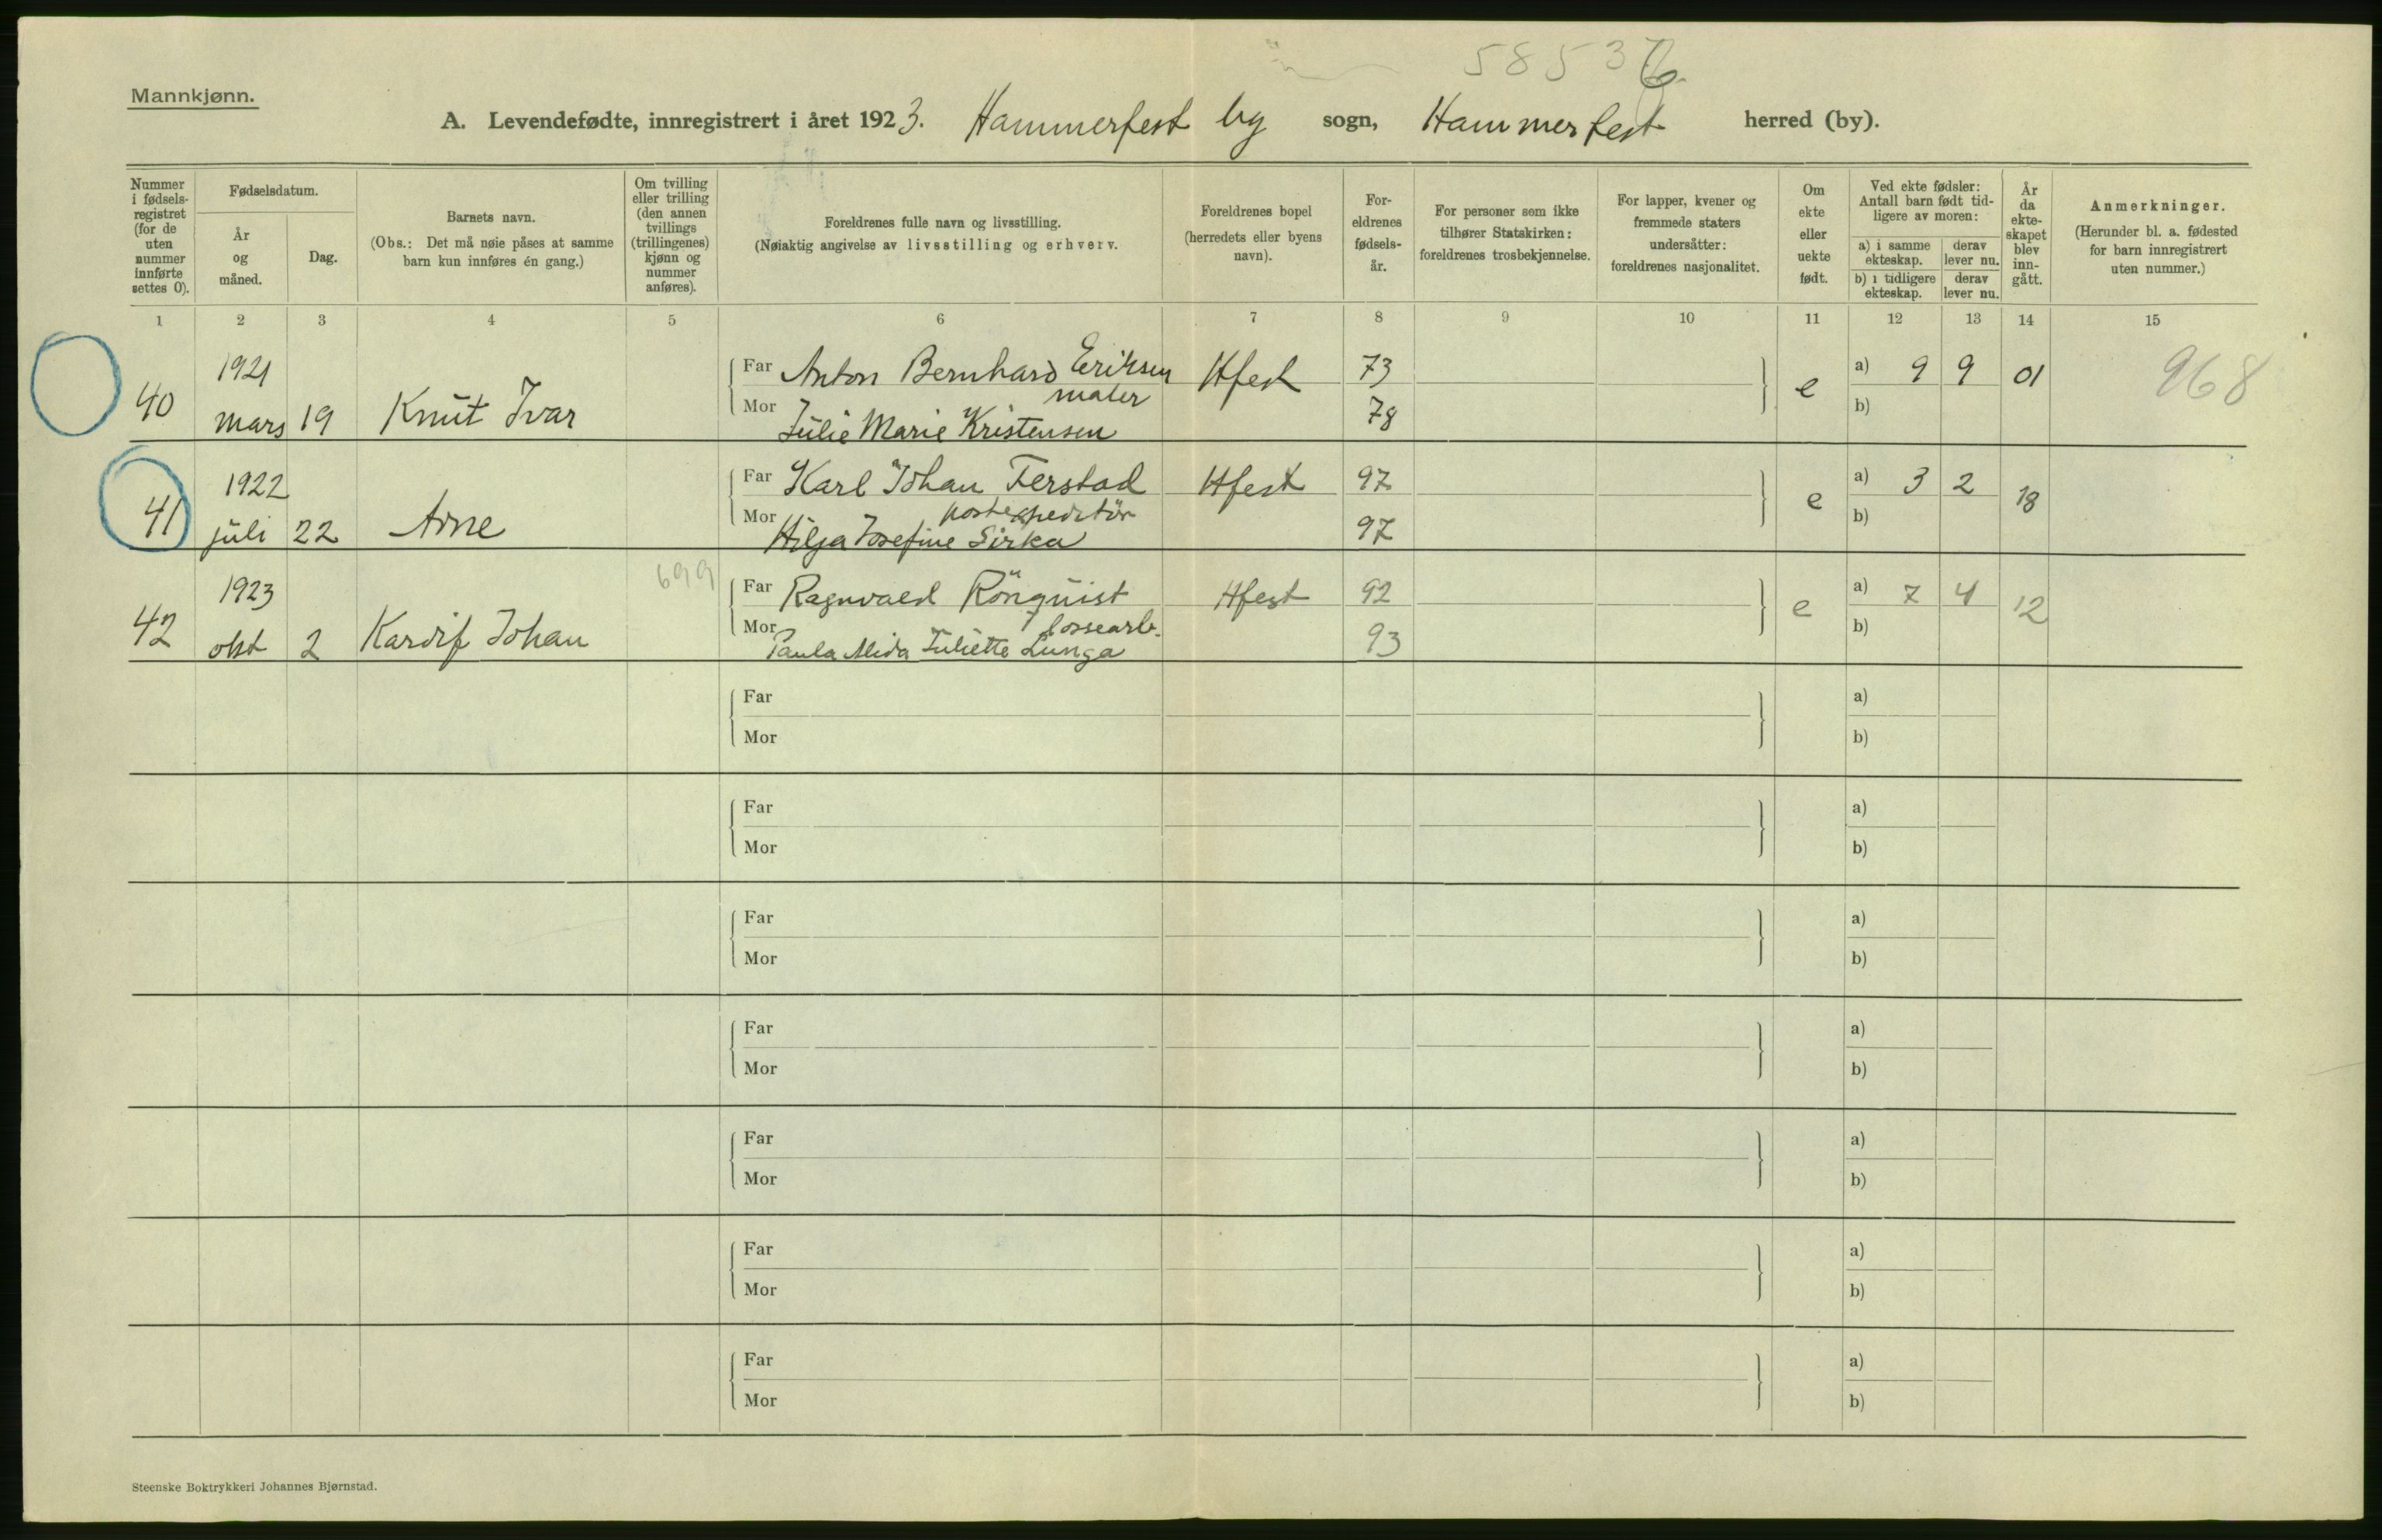 58536
Mannkjønn.
A. Levendefødte, innregistrert i året 1923. Hammerfest by sogn, Hammerfest herred (by).
Nummer i fødselsregistret (for de uten nummer innførte settes 0).
Fødselsdatum.
År og måned.
Dag.
Barnets navn.
(Obs.: Det må nøie påses at samme barn kun innføres én gang.)
Om tvilling eller trilling (den annen tvillings (trillingenes) kjønn og nummer anføres).
Foreldrenes fulle navn og livsstilling.
(Nøiaktig angivelse av livsstilling og erhverv.
Foreldrenes bopel (herredets eller byens navn).
Foreldrenes fødselsår.
For personer som ikke tilhører Statskirken: foreldrenes trosbekjennelse.
For lapper, kvener og fremmede staters undersåtter: foreldrenes nasjonalitet.
Om ekte eller uekte født.
Ved ekte fødsler: Antall barn født tidligere av moren:
a) i samme ekteskap.
derav lever nu.
b) i tidligere ekteskap.
derav lever nu.
År da ekteskapet blev inngått.
Anmerkninger.
(Herunder bl. a. fødested for barn innregistrert uten nummer.)
1 2 3 4 5 6 7 8 9 10 11 12 13 14 15
40 1921 mars 19 Knut Ivar
Far Anton Bernhard Eriksen Hfest 73 e a) 9 9 01 968
maler
Mor Julie Marie Kristensen 78 b)
41 1922 juli 22 Arne
Far Karl Johan Ferstad Hfest 97 e a) 3 2 18
postexpeditør
Mor Hilja Josefine Sirka 97 b)
699
42 1923 okt 2 Kardif Johan
Far Ragnvald Rönquist Hfest 92 e a) 7 4 12
lossearb.
Mor Paula Alida Juliette Lunga 93 b)
Far a)
Mor b)
Far a)
Mor b)
Far a)
Mor b)
Far a)
Mor b)
Far a)
Mor b)
Far a)
Mor b)
Far a)
Mor b)
Steenske Boktrykkeri Johannes Bjørnstad.